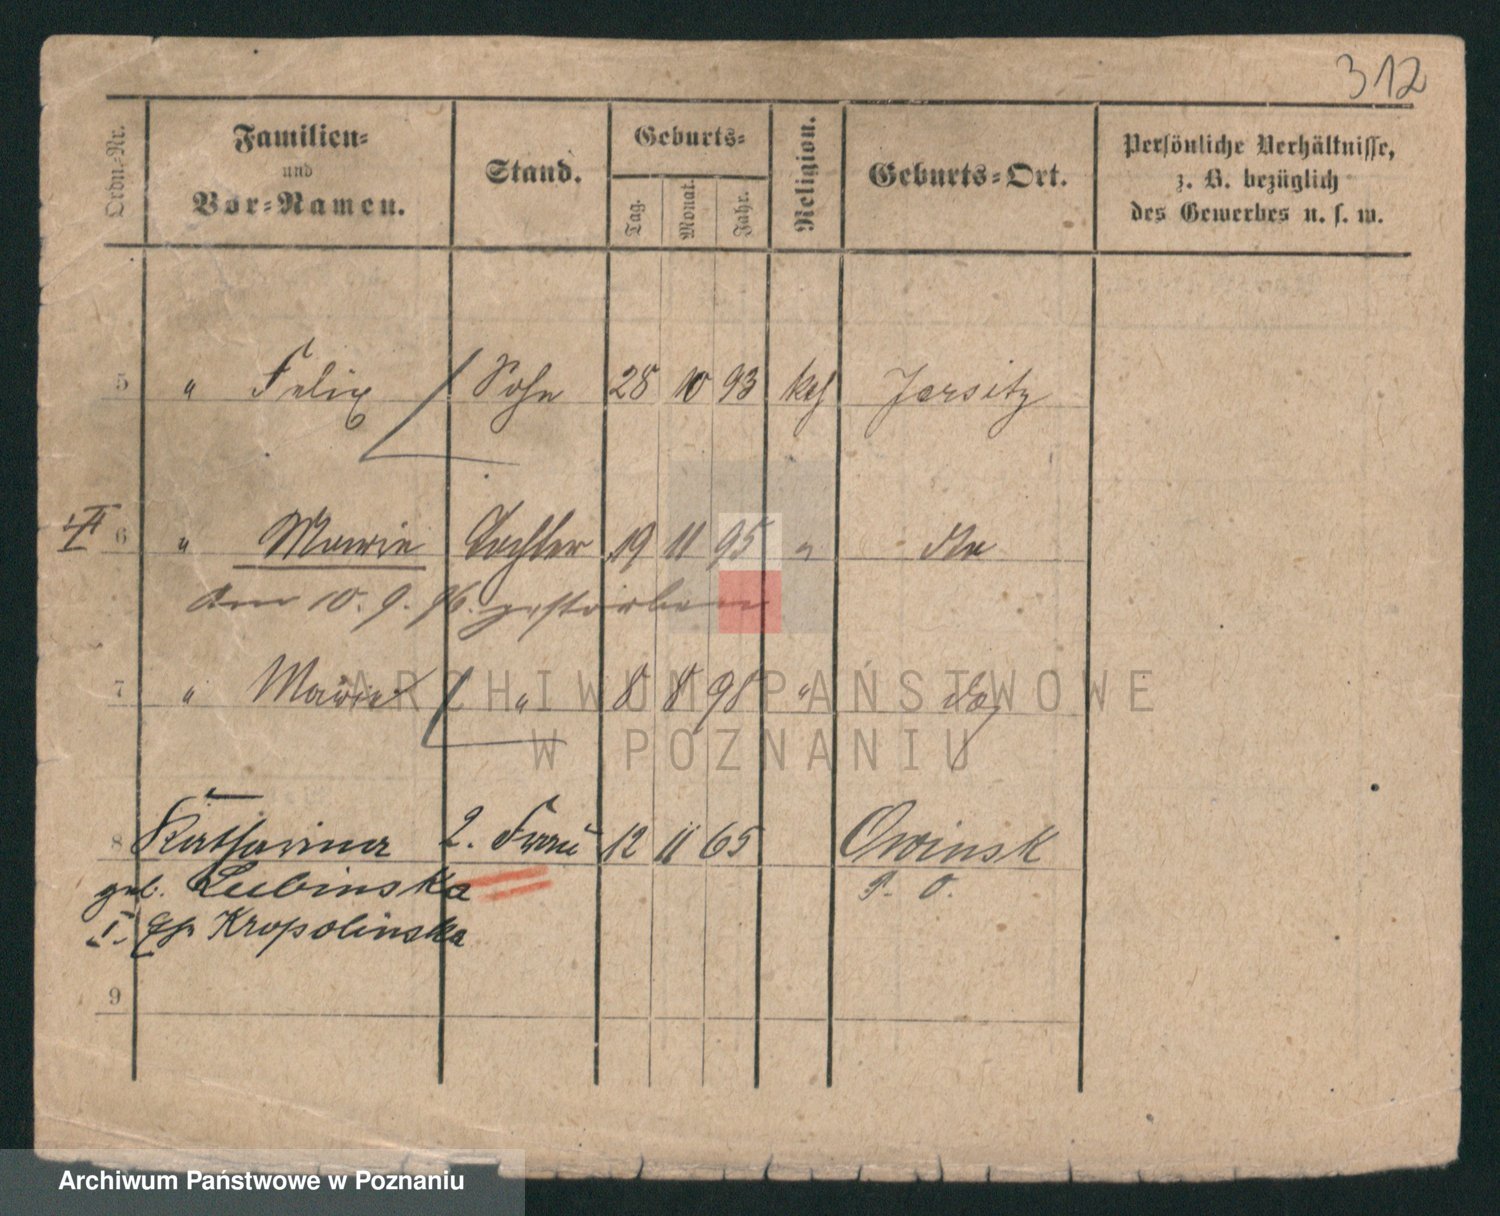 312
Ordn.-Nr. Familien- und Vor-Namen. Stand. Geburts- Tag. Monat. Jahr. Religion. Geburts-Ort. Persönliche Verhältnisse, z. B. bezüglich des Gewerbes u. s. w.
5 " Felix Sohn 28 10 93 kath Jersitz
6 " Marie Tochter 19 11 95 "
am 10. 9. 96. gestorben
7 " Marie " 8 8 98 " do
8 Katharina 2. Frau 12 11 65 Owinsk
geb. Lubinska P. O.
I. Kropolinska
9
ARCHIWUM PAŃSTWOWE
W POZNANIU
Archiwum Państwowe w Poznaniu